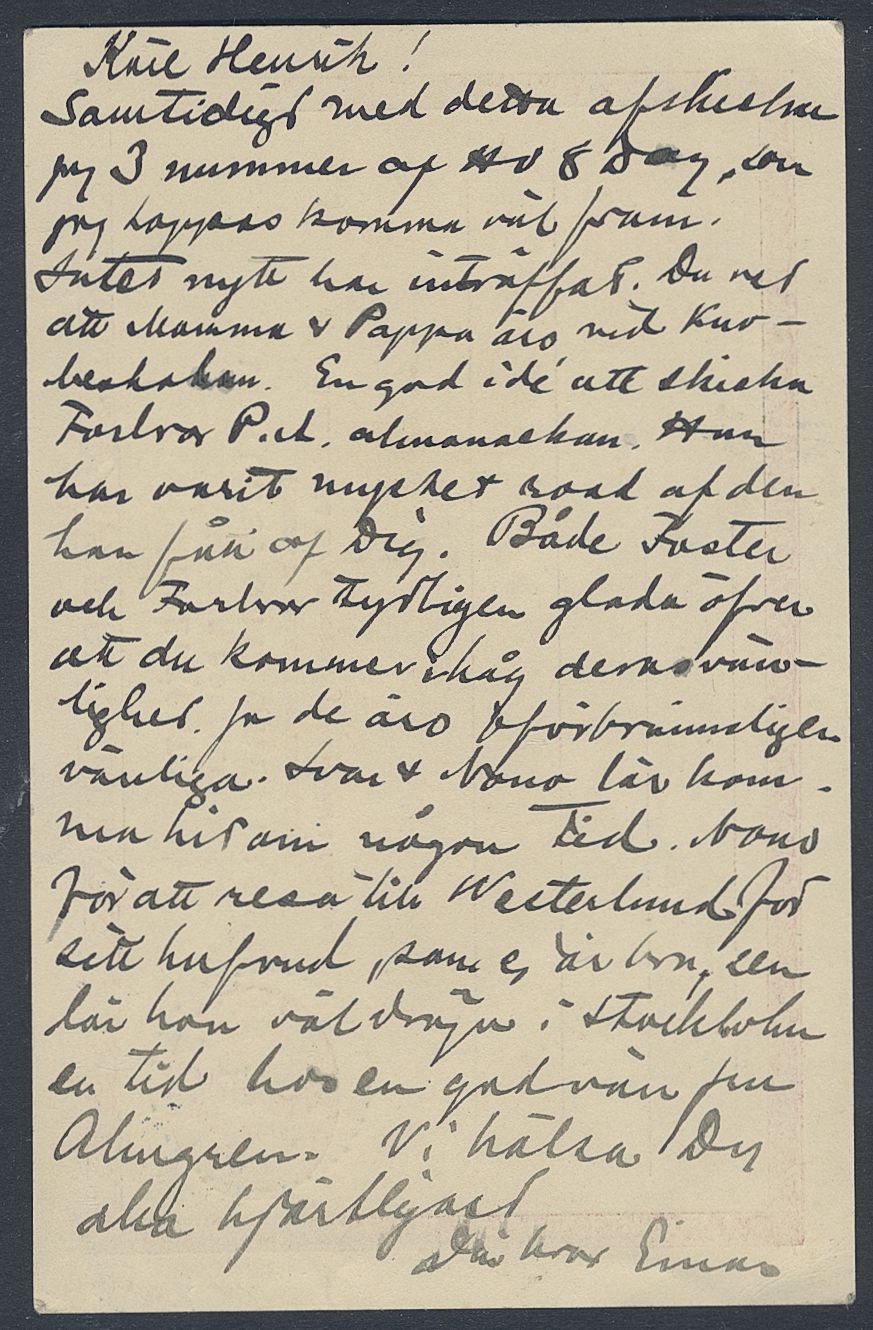 Käre Henrik!
Samtidigt med detta afskickar
jag 3 nummer af Hv 8 Dag, som
jag hoppas komma väl fram.
Intet nytt har inträffat. Du vet
att Mamma & Pappa äro vid Kuo-
beskakan. En god idé att skicka
Farbror P.A. almanackan. Han
har varit mycket road af den
han fått af Dig. Både Faster
och Farbror tydligen glada öfver
att du kommer ihåg deras vän-
lighet. Ja de äro oförbrinneligen
vänliga. Ivar & Nono lär kom-
ma hit om någon tid. Nono
för att resa till Westerlund för
sitt hufvud, som ej är bra, sen
lär hon väl dröja i Stockholm
en tid hos en god vän fru
Almgren. Vi hälsa Dig
alla hjärtligast
Din bror Einar